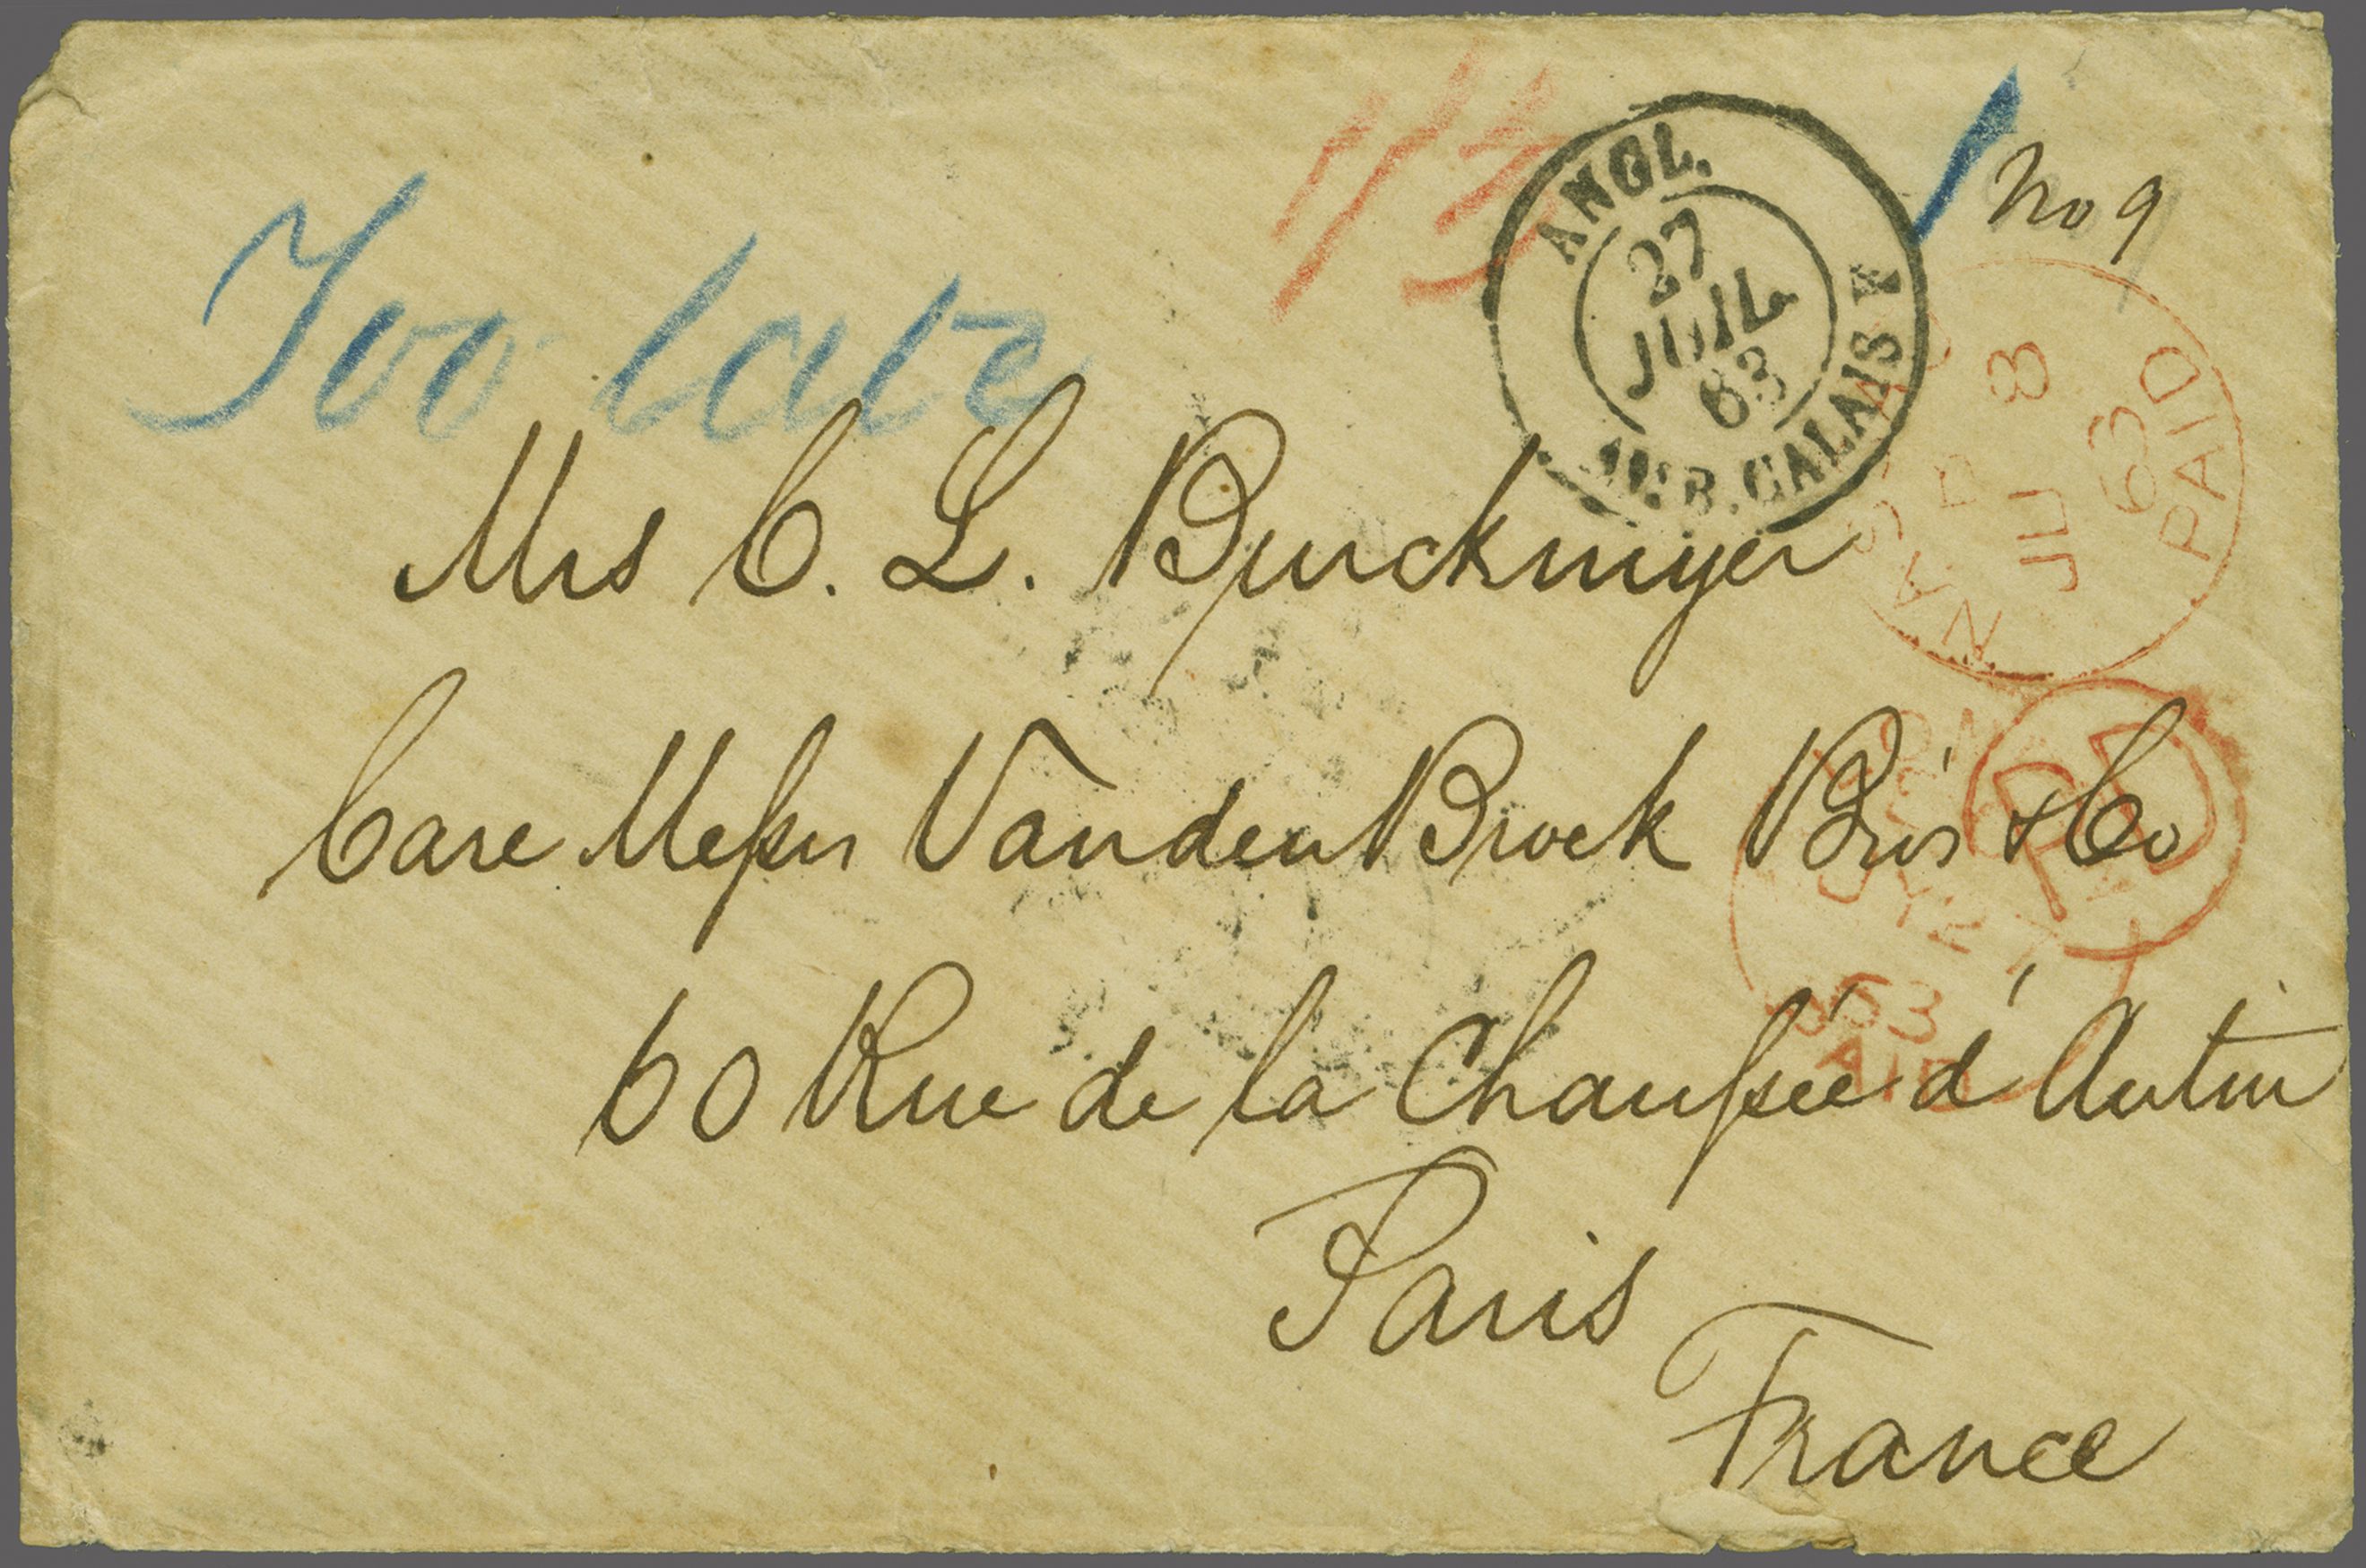 Too late
1/3
1
No 9
ANGL.
27
JUIL
63
AMB. CALAIS
NASSAU
8
JU
63
PAID
Mrs C. L. Burckmyer
Care Messrs Vanden Broek Bros & Co
PD
60 Rue de la Chaussée d'Antin
63
Paris
France